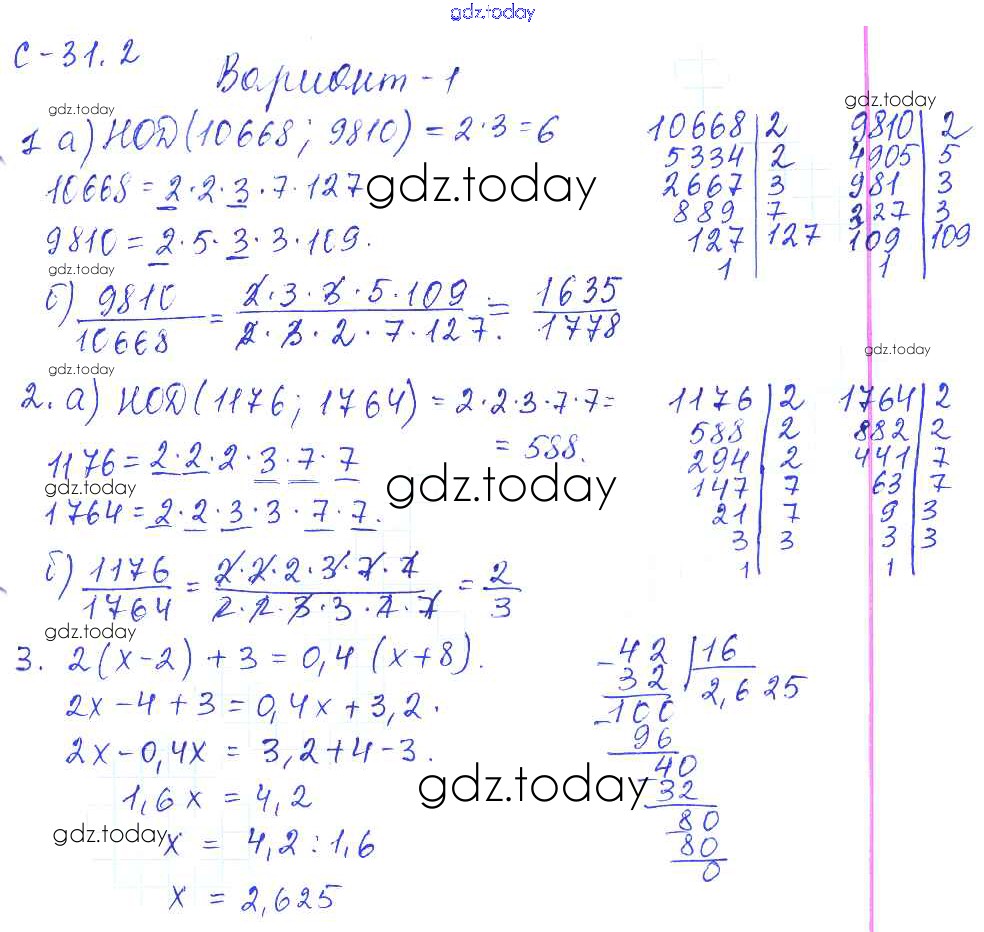 gdz.today
С-31.2
Вариант-1
gdz.today
gdz.today
1 а) НОД(10668; 9810) = 2·3=6
10668 = 2·2·3·7·127
gdz.today
9810 = 2·5·3·3·109.
gdz.today
10668 | 2
5334 | 2
2667 | 3
889 | 7
127 | 127
1
9810 | 2
4905 | 5
981 | 3
327 | 3
109 | 109
1
б) 9810/10668 = 2·3·3·5·109/2·3·2·7·127. = 1635/1778
gdz.today
gdz.today
2. а) НОД(1176; 1764) = 2·2·3·7·7=
= 588.
1176 = 2·2·2·3·7·7
gdz.today
gdz.today
1764 = 2·2·3·3·7·7.
1176 | 2
588 | 2
294 | 2
147 | 7
21 | 7
3 | 3
1
1764 | 2
882 | 2
441 | 7
63 | 7
9 | 3
3 | 3
1
б) 1176/1764 = 2·2·2·3·7·7/2·2·3·3·7·7 = 2/3
gdz.today
3. 2(x-2) + 3 = 0,4 (x+8).
2x-4+3=0,4x+3,2.
2x-0,4x = 3,2+4-3.
1,6x = 4,2
gdz.today
gdz.today
x = 4,2:1,6
x = 2,625
-42 | 16
32 | 2,625
-100
96
40
-32
80
80
0